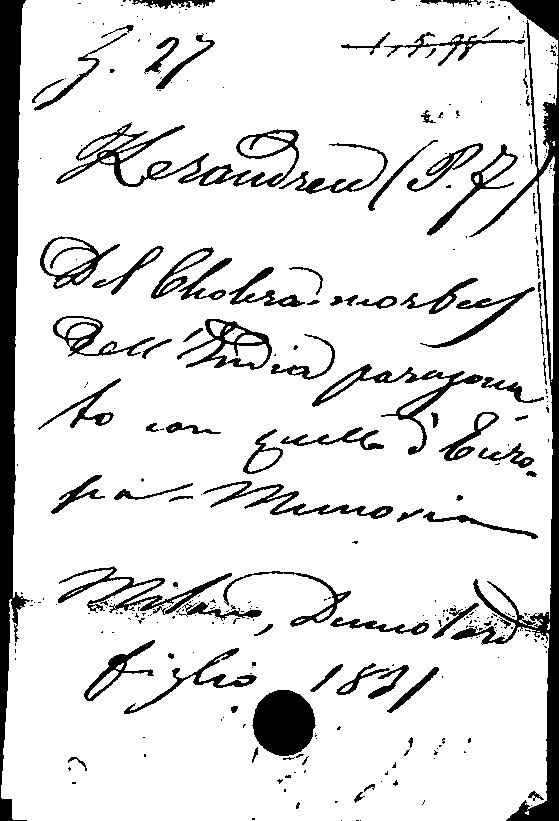 G. 27 1,5,98
Kerandren (P. F)
Del Cholera-morbus
Dell'India paragona-
to con quello d'Euro-
pa - Memoria
Milano, Dumolard
figlio 1831